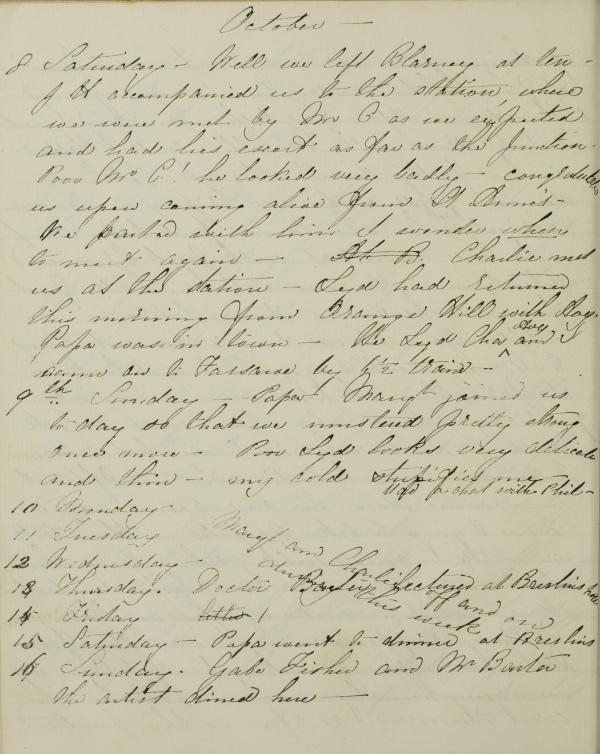 October —
8 Saturday – Well we left Blarney at ten –
J H accompanied us to the station where
we were met by Mr C as we expected
and had his escort as far as the Junction –
Poor Mr C! he looked very badly – congratulated
us upon coming alive from St Anne's –
We parted with him I wonder when
to meet again – Charlie met
us at the station – Lyd had returned
this morning from Orange Hill with Hay.
Papa was in town – We Lyd Cha Hay and I
came on to Tassaroe by train –
9th Sunday – Papa Margt joined us
to day so that we mustered pretty strong
once more – Poor Lyd looks very delicate
and thin – my cold stupifies me
Had a chat with Phil –
10 Monday
11 Tuesday
Margt and Charlie off and on
during this week
12 Wednesday –
13 Thursday. Doctor lectured at Breslins hotel
14 Friday
15 Saturday – Papa went to dinner at Breslins
16 Sunday. Gabe Fisher and Mr Baxter
the artist dined here –